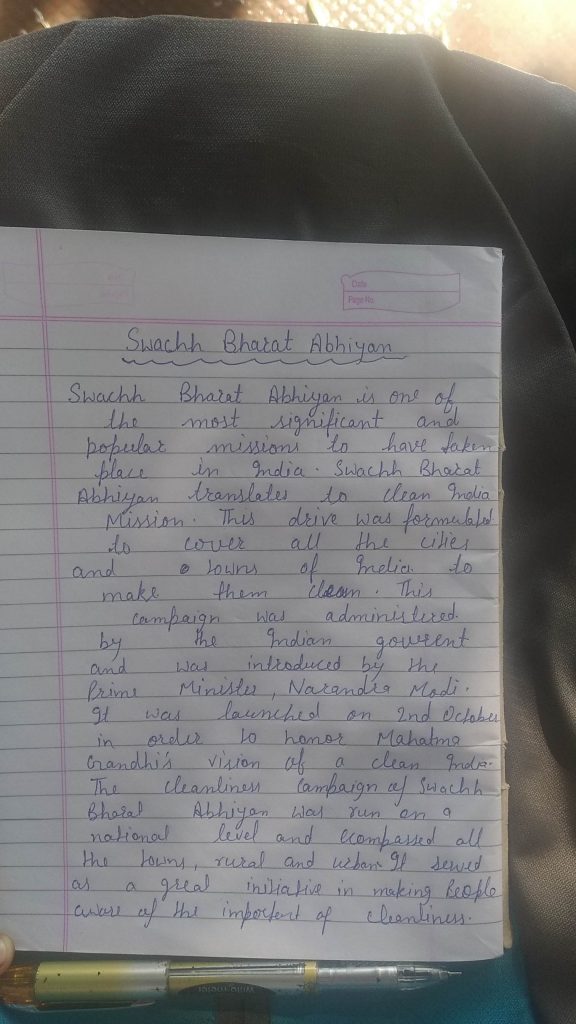 Date
Page No.
Swachh Bharat Abhiyan
Swachh Bharat Abhiyan is one of
the most significant and
popular missions to have taken
place in India. Swachh Bharat
Abhiyan translates to clean India
Mission. This drive was formulated
to cover all the cities
and towns of India. to
make them clean. This
campaign was administered.
by the Indian govrent
and was introduced by the
Prime Minister, Narandra Modi.
It was launched on 2nd October
in order to honor Mahatma
Grandhi's vision of a clean India.
The cleanliness campaign of Swachh
Bharat Abhiyan was run on a
national level and ecompassed all
the towns, rural and urban. It served
as a great initiative in making People
aware of the importent of cleanliness.